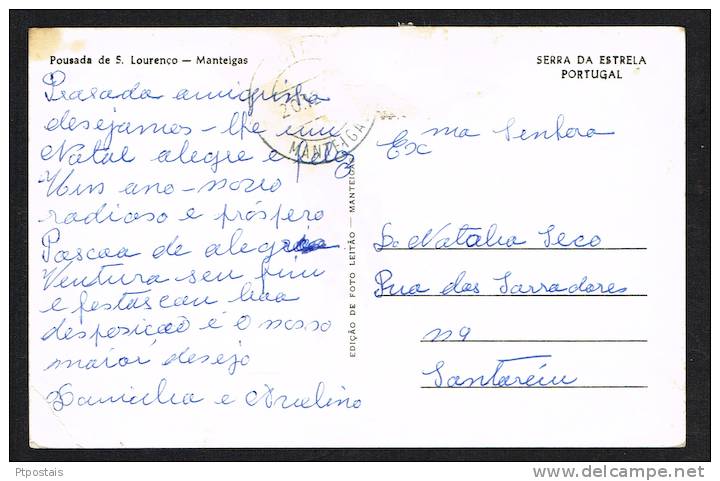 Pousada de S. Lourenço — Manteigas
SERRA DA ESTRELA
PORTUGAL
MANTEIGAS
Prasada amiguinha
desejamos-lhe um
Natal alegre e feliz
Um ano-novo
radioso e próspero
Pascoa de alegria
Ventura sem fim
e festas com boa
desposicão é o nosso
maior desejo
e Avelino
EDIÇÃO DE FOTO LEITÃO — MANTEIGAS
Exma Senhora
D. Natalia Seco
Rua dos Sarradores
Santarém
Ptpostais
www.delcampe.net